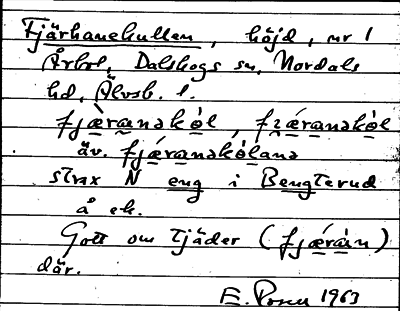 Tjärhanekullen, höjd, nr 1
Årbol, Dalskogs sn, Nordals
hd, Älvsb. l.
fjæ̀ranəkol, fzǽranəkol
äv. fjǽranəkolanə
strax N eng i Bengterud
å ek.
Gott om tjäder (fjæran)
där.
E. 1963